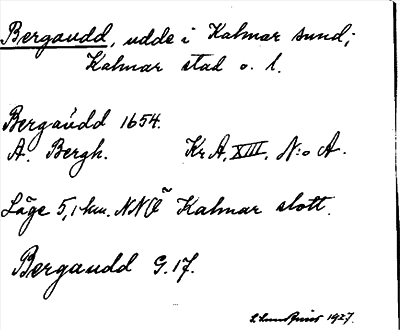 Bergaudd, udde i Kalmar sund;
Kalmar stad o. l.
Bergaúdd 1654.
A. Bergh. Kr A, XIII, N:o A.
Läge 5,1 km. NNÖ Kalmar slott.
Bergaudd G.17.
1927.